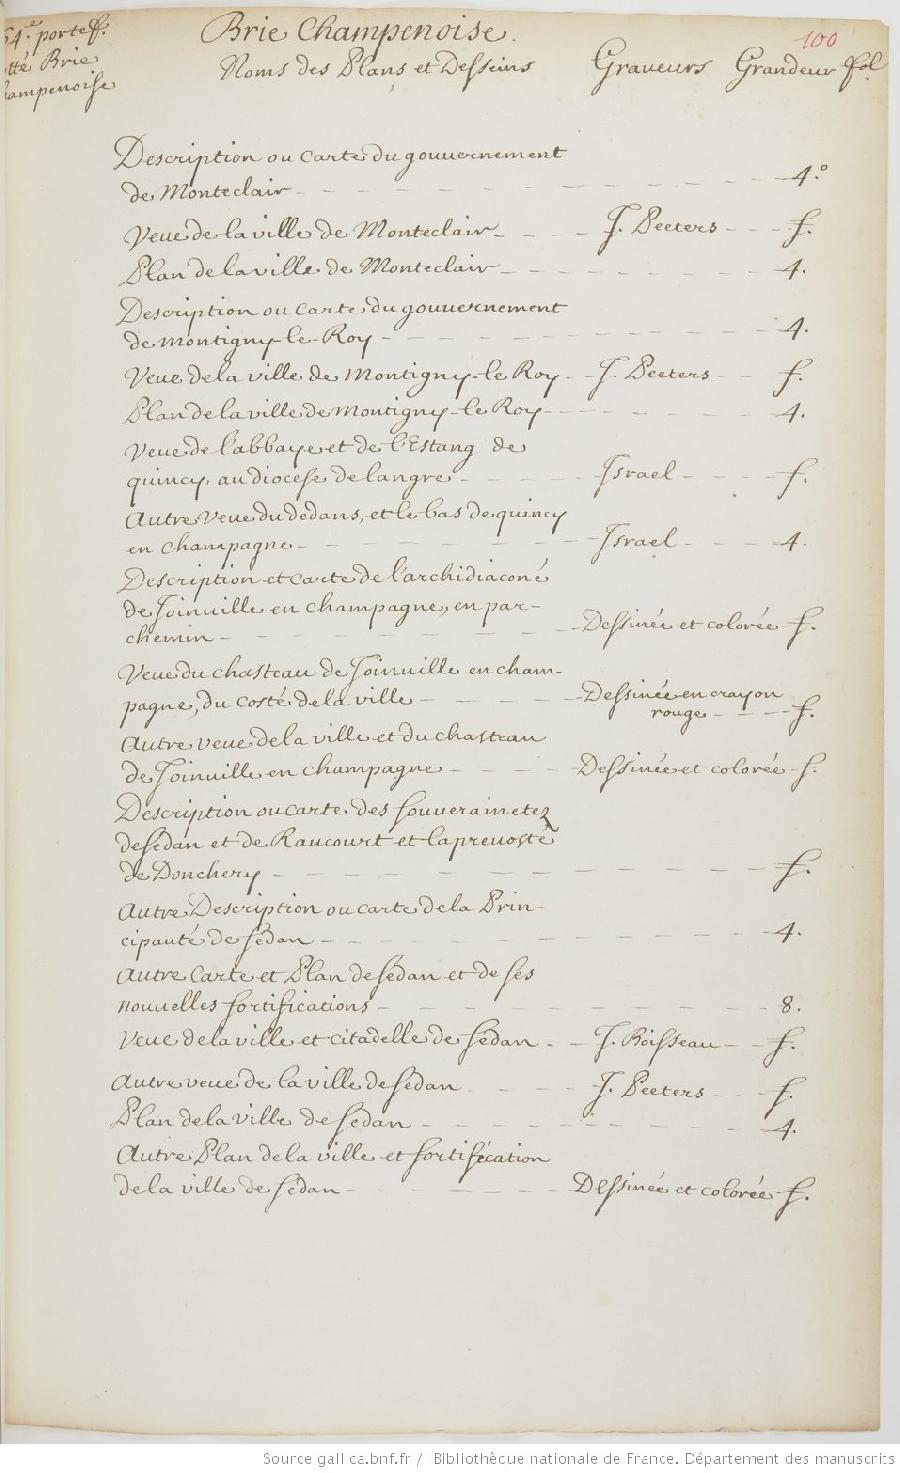 54.e portef.
Brie Champenoise.
100
tté Brie
Noms des Plans et Desseins Graveurs Grandeur fol.
hampenoise
Description ou carte du gouvernement
de Monteclair - - - 4.°
Veue de la ville de Monteclair - - - J. Peeters - - - f.
Plan de la ville de Monteclair - - - 4.
Description ou carte du gouvernement
de montigny-le-Roy - - - 4.
Veue de la ville de Montigny-le Roy - - J. Peeters - - f.
Plan de la ville de montigny-le Roy - - - 4.
Veue de l'abbaye et de l'Estang de
quincy, au diocese de langre - - - Israel - - - f.
Autre veue du dedans, et le bas de quincy
en champagne - - - Israel - - - 4.
Description et carte de l'archidiaconé
de Joinville en champagne, en par-
chemin - - - Dessinée et colorée f.
Veue du chasteau de Joinville en cham-
pagne, du costé de la ville - - - Dessinée en crayon
rouge - - - f.
Autre veue de la ville et du chasteau
de Joinville en champagne - - - Dessinée et colorée - f.
Description ou carte des souverainetez
de sedan et de Raucourt et la prevosté
de Donchery - - - f.
Autre Description ou carte de la Prin-
cipauté de sedan - - - 4.
Autre Carte et Plan de sedan et de ses
nouvelles fortifications - - - 8.
Veue de la ville et citadelle de sedan - - J. Boisseau - - f.
Autre veue de la ville de sedan - - - J. Peeters - - f.
Plan de la ville de sedan - - - 4.
Autre Plan de la ville et fortification
de la ville de sedan - - - Dessinée et colorée f.
Source gallica.bnf.fr / Bibliothèque nationale de France. Département des manuscrits